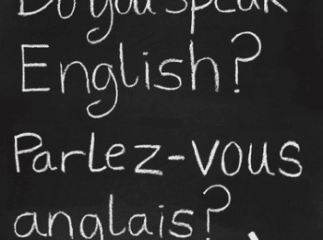 Do you speak
English?
Parlez-vous
anglais?